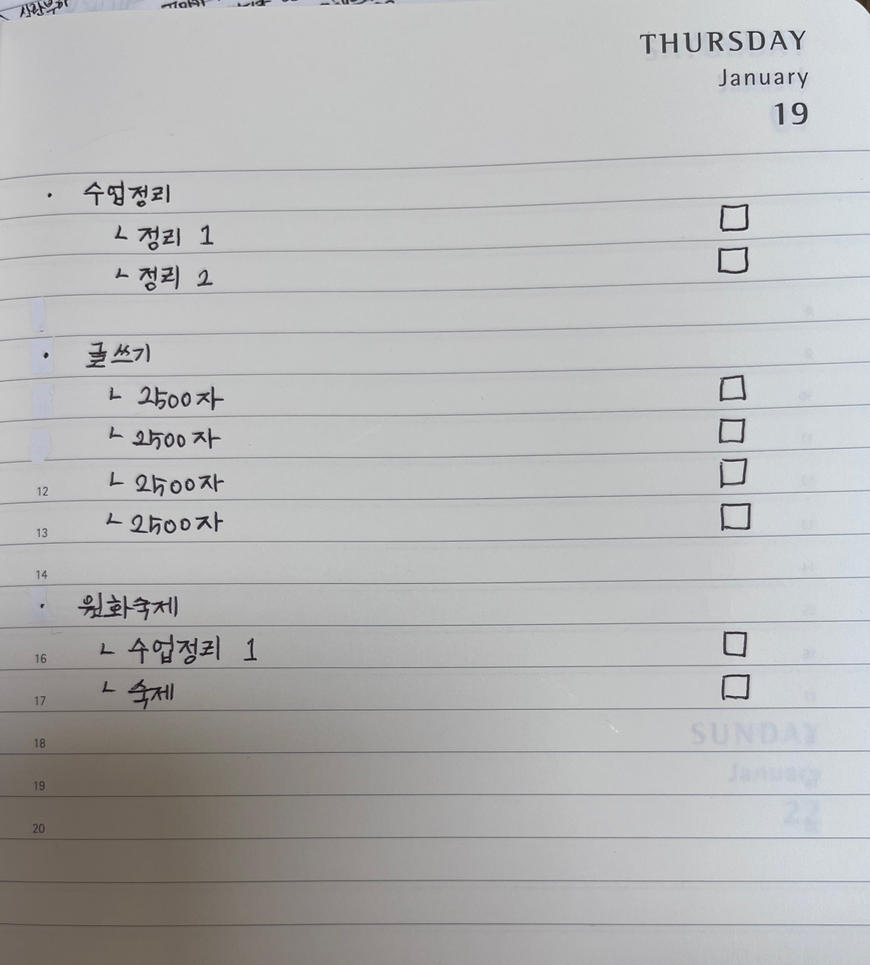 THURSDAY
January
19
· 수업정리
ㄴ 정리 1
ㄴ 정리 2
· 글쓰기
ㄴ 2500자
ㄴ 2500자
12 ㄴ 2500자
13 ㄴ 2500자
14
· 원화숙제
16 ㄴ 수업정리 1
17 ㄴ 숙제
18
SUNDAY
19
January
20
22